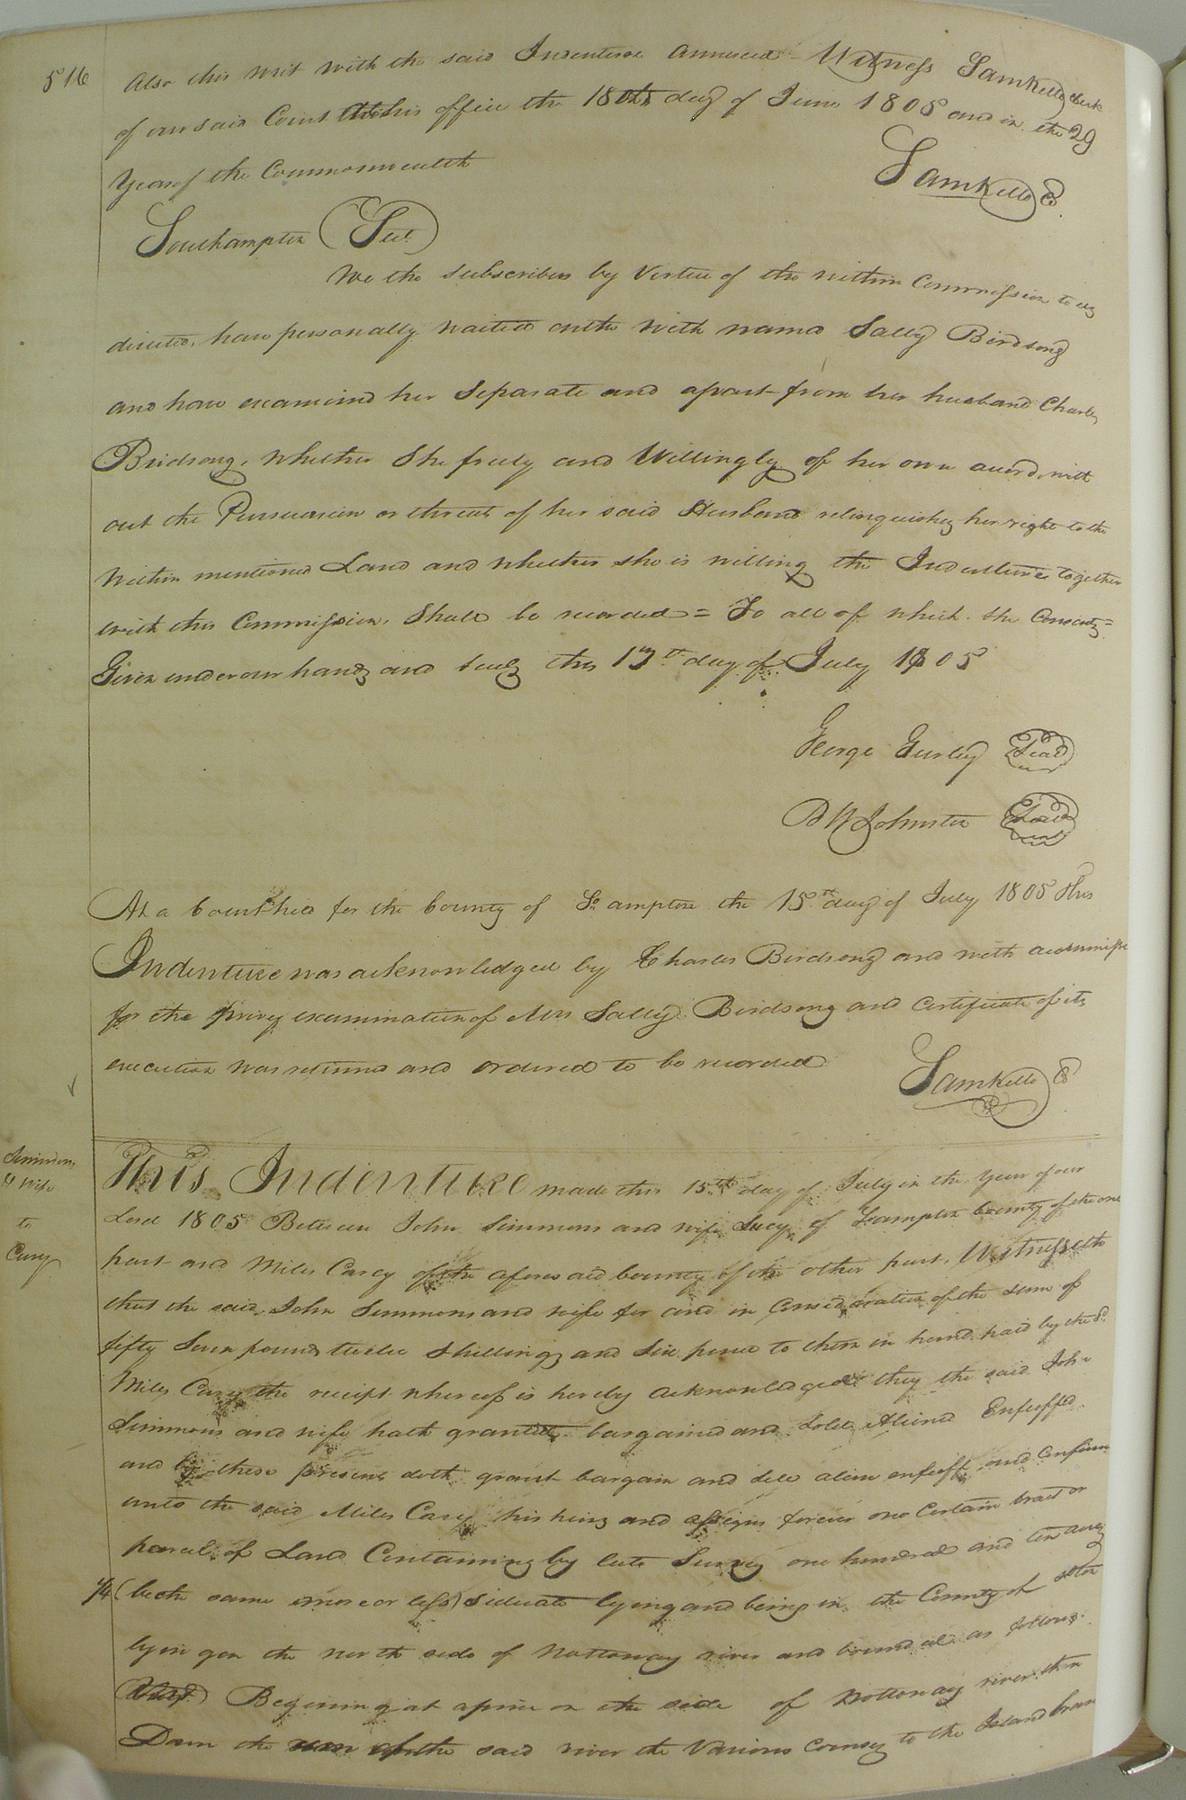 516
Also this writ with the said Indenture annexed - Witness Samkello Clerk
of our said Court this office the 18th day of June 1805 and in the 29
Year of the Commonwealth
Samkello C
Southampton Sct
We the subscribers by Virtue of the within Commission to us
directed, have personally waited on the with namd Sally Birdsong
and have examined her Separate and apart from her husband Charles
Birdsong, whether She freely and Willingly of her own accord, with
out the Persuasion or threats of her said Husband relinquishes her right to the
Within mentioned Land and whether she is willing the Indenture together
with this Commission, Shall be recorded = To all of which she Consents =
Given under our hands and seals this 13th day of July 1805
George Gurley Seal
B W Johnston Seal
At a Court held for the County of So ampton the 15th day of July 1805 This
Indenture was acknowledged by Charles Birdsong and with a commission
for the privy examination of Mrs Sally Birdsong and Certificate of its
execution was returned and ordered to be recorded
Samkello C
Simmons
& Wife
to
Cary
This Indenture made this 15th day of July in the Year of our
Lord 1805 Between John Simmons and wife Lucy of Soampton County of the one
part and Miles Carey of the aforesaid County of the other part, Witnesseth
that the said John Simmons and wife for and in Consideration of the sum of
fifty Seven pounds twelve Shillings and Six pence to them in hand paid by the Sd
Miles Cary the receipt whereof is hereby acknowledged they the said John
Simmons and wife hath granted bargained and Sold Aliend Enfeoffed
and by these presents doth grant bargain and Sell alien enfeoff and Confirm
unto the said Miles Cary his heirs and assigns forever one Certain tract or
parcel of Land Containing by late Survey one hundred and ten acres
(be the same more or less) Situate lying and being in the County of
lyin gon the north side of Nottoway river and bounded as follows
Begining at a pine on the side of Nottoway river then
Down the of the said river the Various Courses to the Island bran